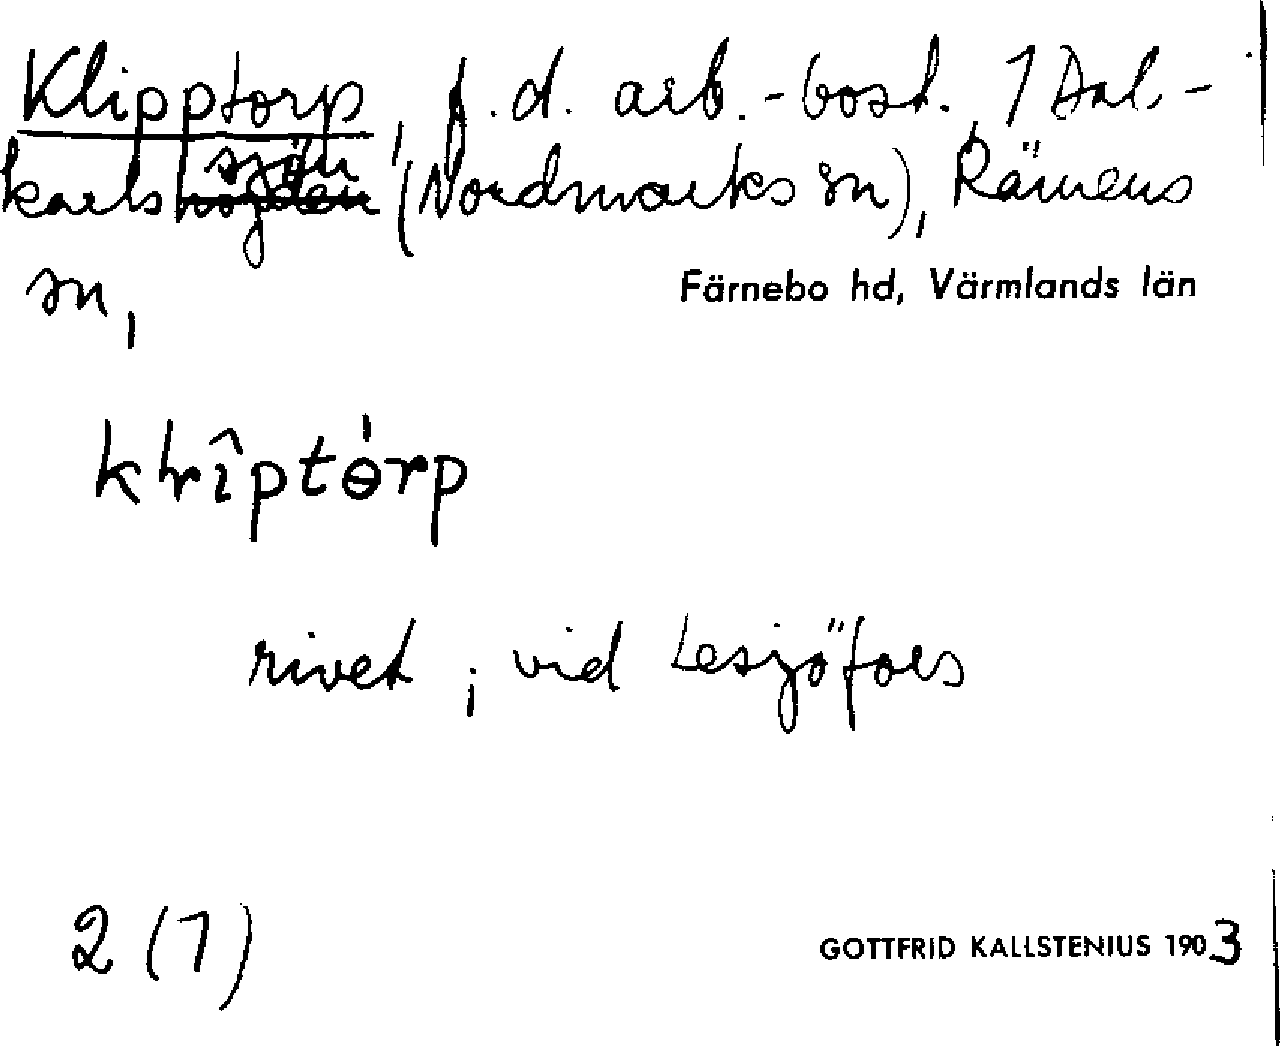 Klipptorp, f.d. arb.-bost., 1 Dal-
karlssjön (Nordmarks sn), Rämens
sn,
Färnebo hd, Värmlands län
rivet; vid Lesjöfors
2 (1)
GOTTFRID KALLSTENIUS 1903